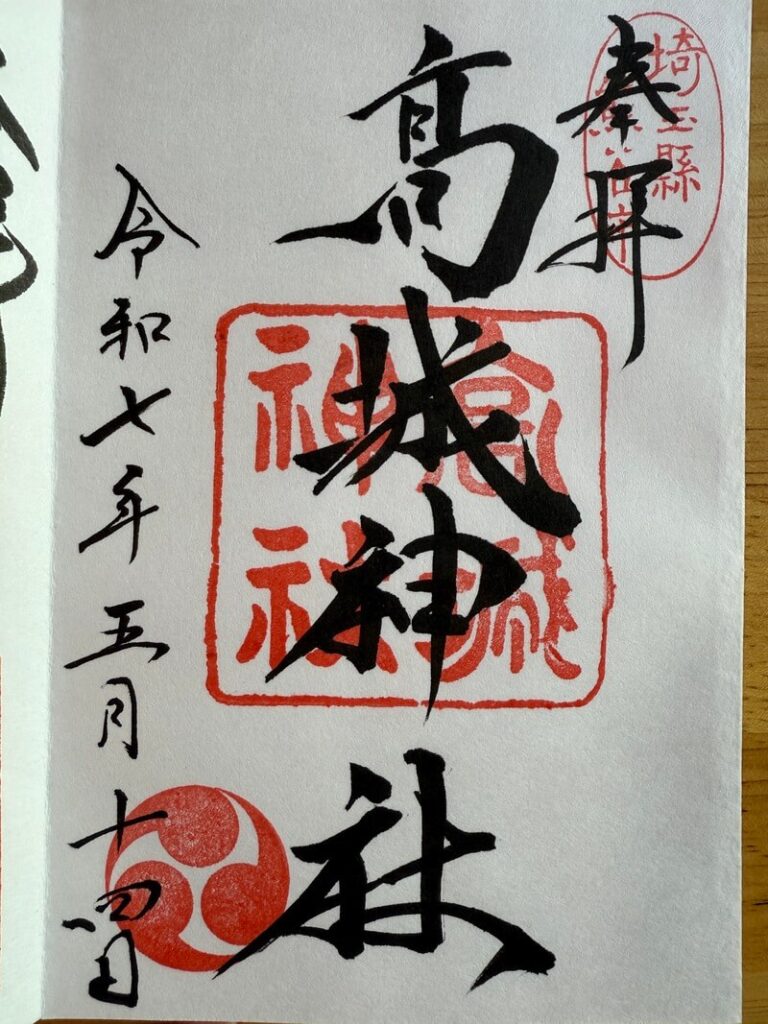 奉拝
埼玉縣
熊谷市
高城神社
高城
神社
令和七年五月十四日